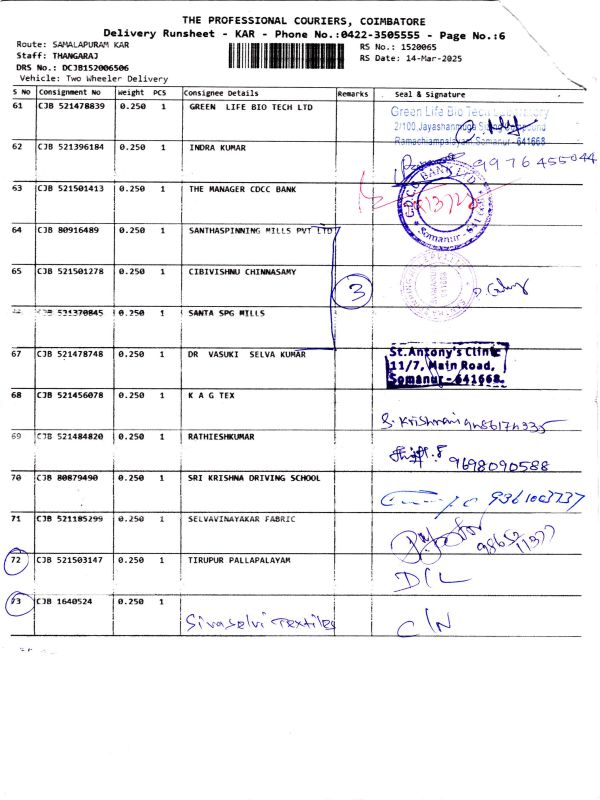 THE PROFESSIONAL COURIERS, COIMBATORE
Delivery Runsheet - KAR - Phone No.:0422-3505555 - Page No.:6
Route: SAMALAPURAM KAR
RS No.: 1520065
Staff: THANGARAJ
RS Date: 14-Mar-2025
DRS No.: DCJB152006506
Vehicle: Two Wheeler Delivery
S No Consignment No Weight PCS Consignee Details Remarks Seal & Signature
61 CJB 521478839 0.250 1 GREEN LIFE BIO TECH LTD
Green Life Bio Tech
2/100, Jayashanmuga
Ramachiampalayam, Somanur - 641668
62 CJB 521396184 0.250 1 INDRA KUMAR
9976455044
63 CJB 521501413 0.250 1 THE MANAGER CDCC BANK
C.D.C.C BANK LTD
Somanur - 641668
64 CJB 80916489 0.250 1 SANTHASPINNING MILLS PVT LTD
65 CJB 521501278 0.250 1 CIBIVISHNU CHINNASAMY
3
CJB 521370845 0.250 1 SANTA SPG MILLS
67 CJB 521478748 0.250 1 DR VASUKI SELVA KUMAR
St.Antony's Clinic
11/7, Main Road,
Somanur - 641668.
68 CJB 521456078 0.250 1 K A G TEX
69 CJB 521484820 0.250 1 RATHIESHKUMAR
9698090588
70 CJB 80879490 0.250 1 SRI KRISHNA DRIVING SCHOOL
9361003737
71 CJB 521185299 0.250 1 SELVAVINAYAKAR FABRIC
72 CJB 521503147 0.250 1 TIRUPUR PALLAPALAYAM
D/L
73 CJB 1640524 0.250 1 Sivaselvi Textiles
C/N